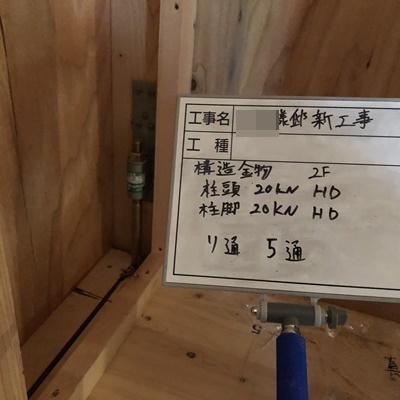 工事名 様邸新工事
工種
構造金物 2F
柱頭 20kN HD
柱脚 20KN HD
り通 5通